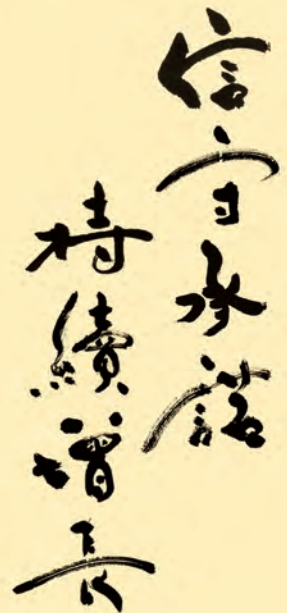 信守承諾
持續增長